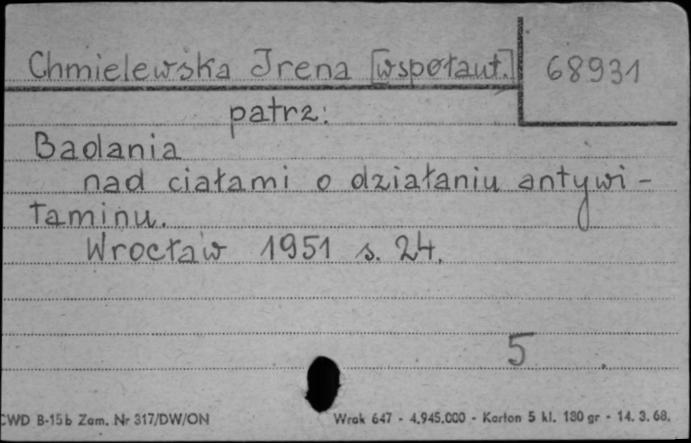 Chmielewska Irena [wspołaut.] 68931
patrz:
Badania
nad ciałami o działaniu antywi-
taminu.
Wrocław 1951 s. 24.
5
CWD B-15b Zam. Nr 317/DW/ON Wrak 647 - 4.945.000 - Karton 5 kl. 180 gr - 14. 3. 68.